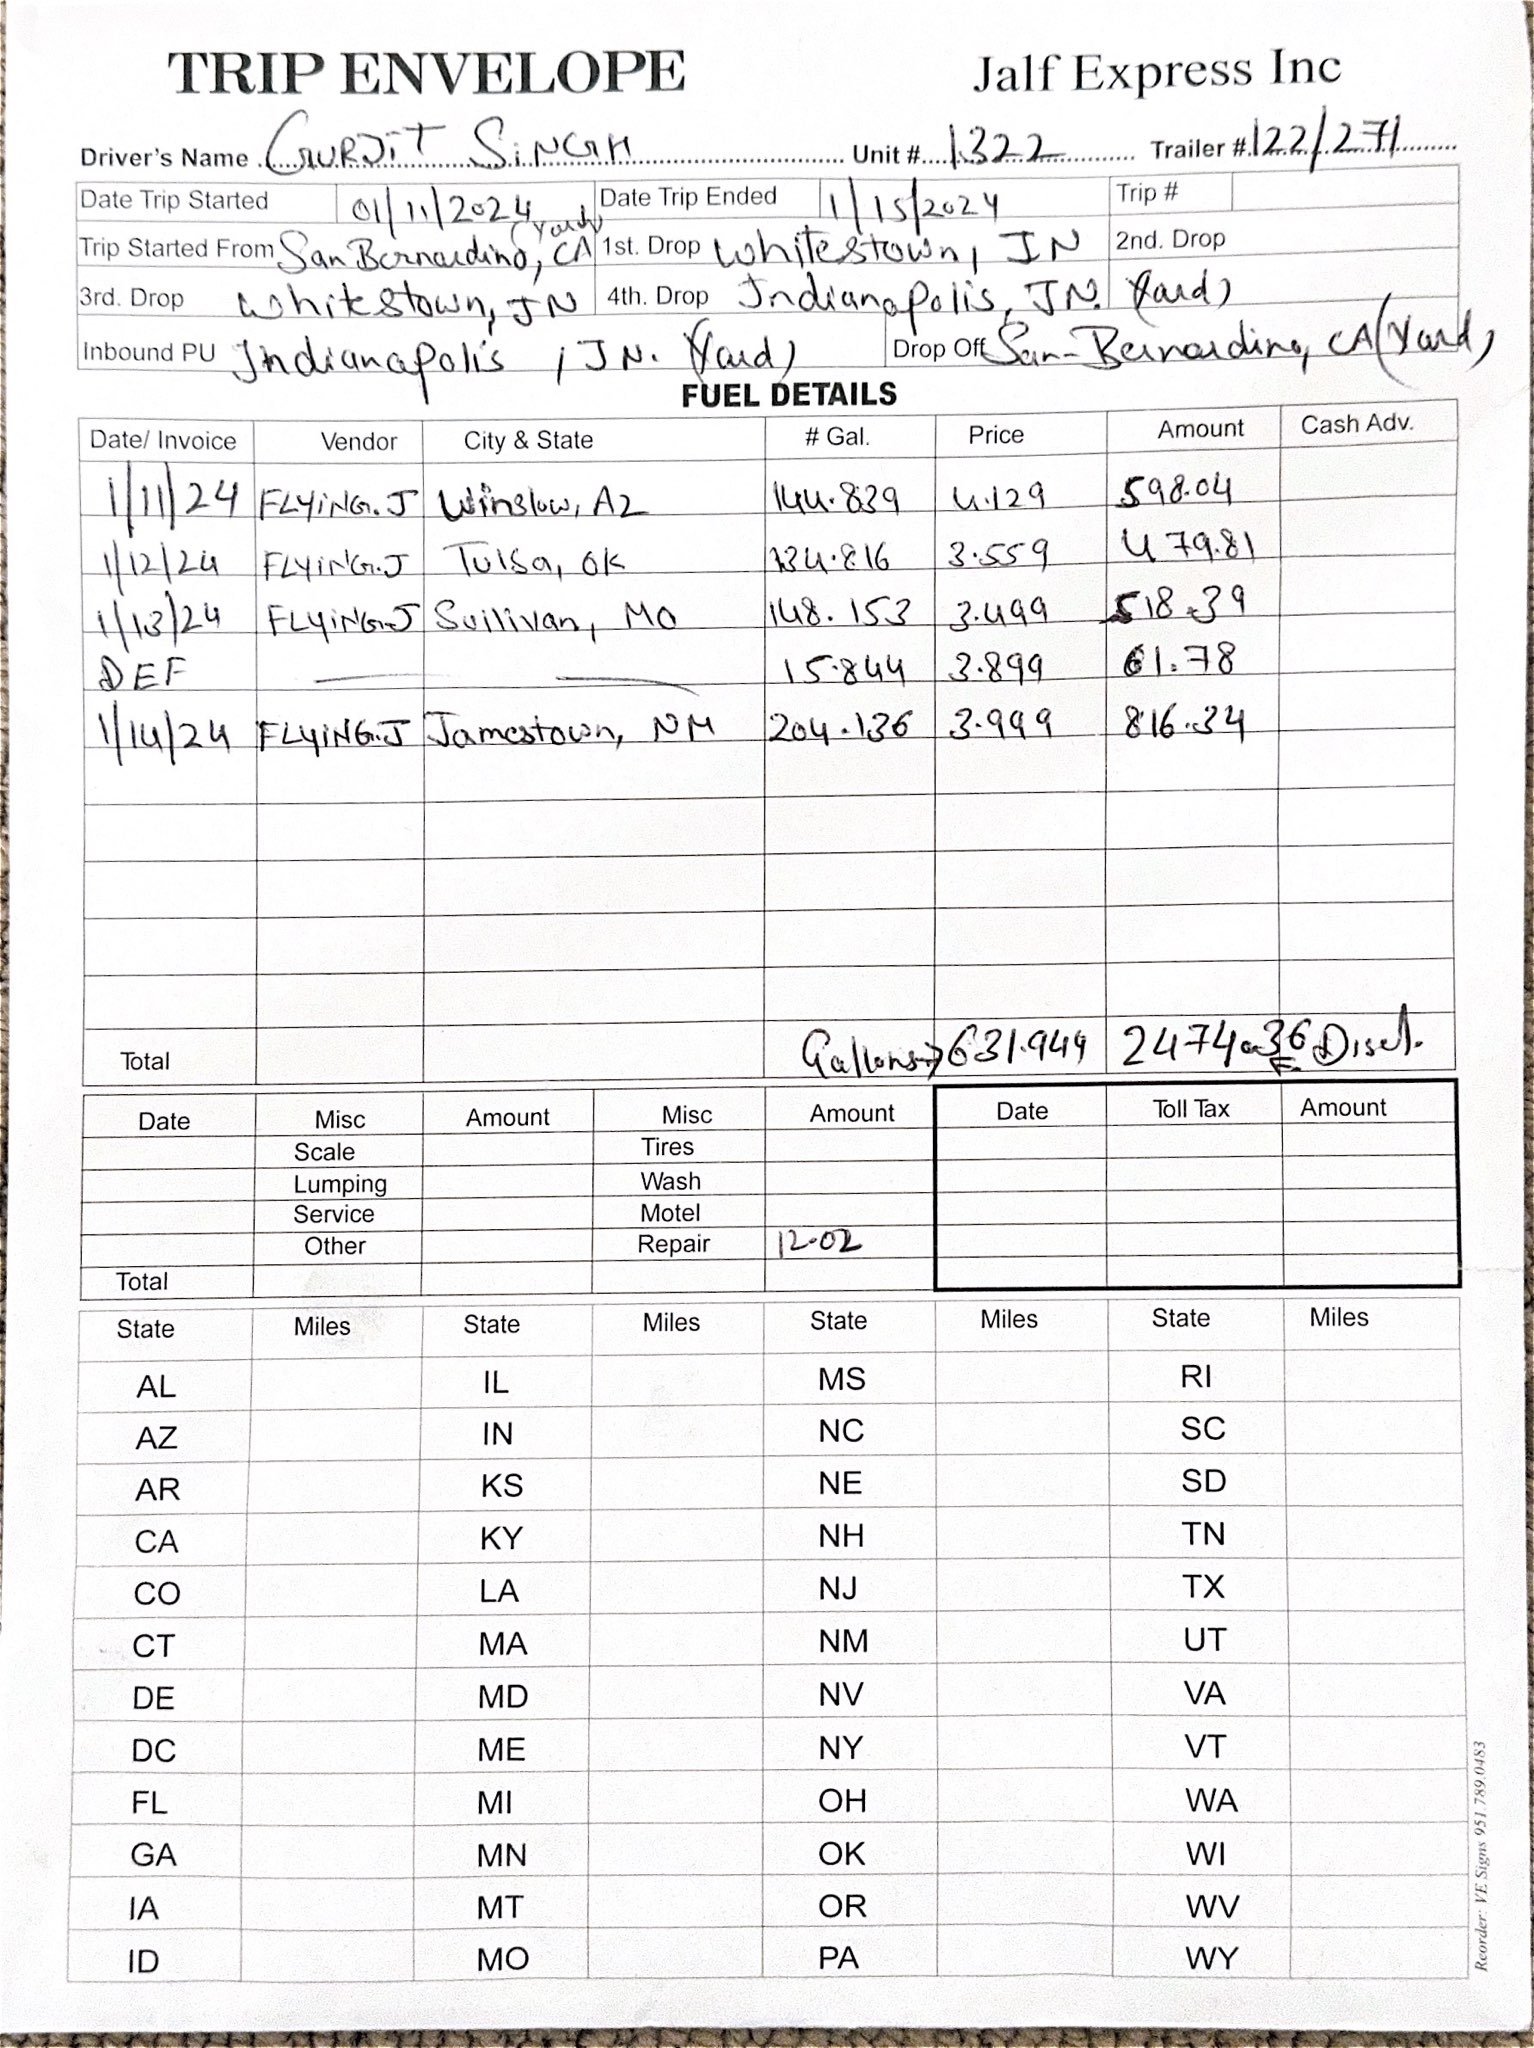 TRIP ENVELOPE Jalf Express Inc
Driver's Name GURJIT SINGH Unit # 1322 Trailer # 122/271
Date Trip Started 01/11/2024 Date Trip Ended 1/15/2024 Trip #
Trip Started From San Bernardino, CA (Yard) 1st. Drop Whitestown, IN 2nd. Drop
3rd. Drop Whitestown, IN 4th. Drop Indianapolis, IN. (Yard)
Inbound PU Indianapolis, IN. (Yard) Drop Off San-Bernardino, CA (Yard)
FUEL DETAILS
Date/ Invoice Vendor City & State # Gal. Price Amount Cash Adv.
1/11/24 FLYING.J Winslow, AZ 144.839 4.129 598.04
1/12/24 FLYING.J Tulsa, OK 134.816 3.559 479.81
1/13/24 FLYING.J Sullivan, MO 148.153 3.499 518.39
DEF 15.844 3.899 61.78
1/14/24 FLYING.J Jamestown, NM 204.136 3.999 816.34
Total Gallons→ 631.949 2474.36
Date Misc Amount Misc Amount Date Toll Tax Amount
Scale Tires
Lumping Wash
Service Motel
Other Repair 12.02
Total
State Miles State Miles State Miles State Miles
AL IL MS RI
AZ IN NC SC
AR KS NE SD
CA KY NH TN
CO LA NJ TX
CT MA NM UT
DE MD NV VA
DC ME NY VT
FL MI OH WA
GA MN OK WI
IA MT OR WV
ID MO PA WY
Reorder: VE Signs 951.789.0483